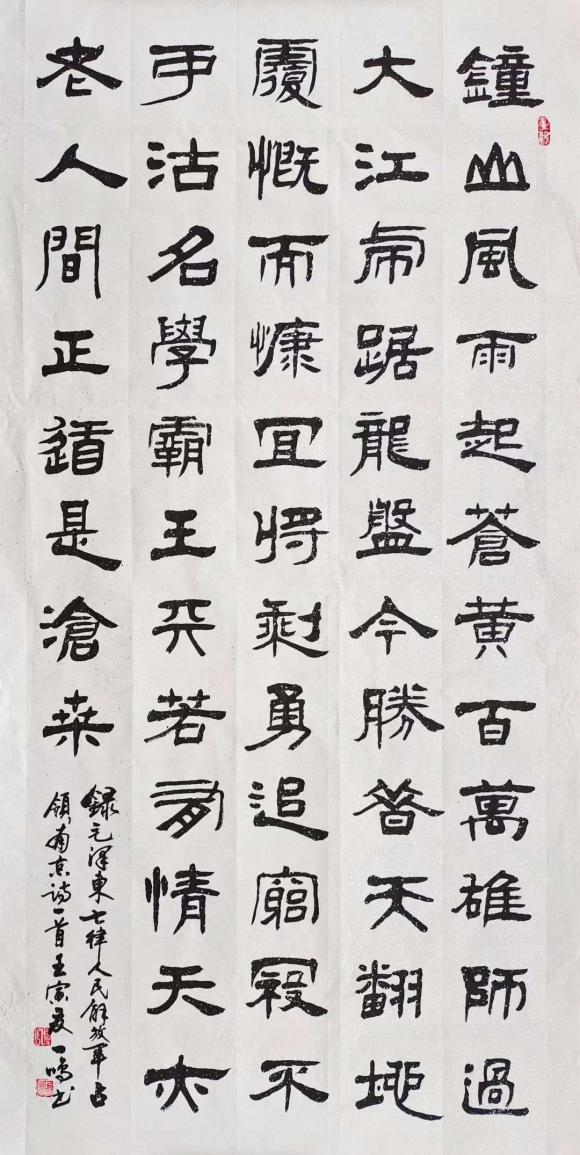 鐘山風雨起蒼黃百萬雄師過
大江虎踞龍盤今勝昔天翻地
覆慨而慷宜將剩勇追窮寇不
可沽名學霸王天若有情天亦
老人間正道是滄桑
錄毛澤東七律人民解放軍占
領南京诗一首壬寅夏一鳴书